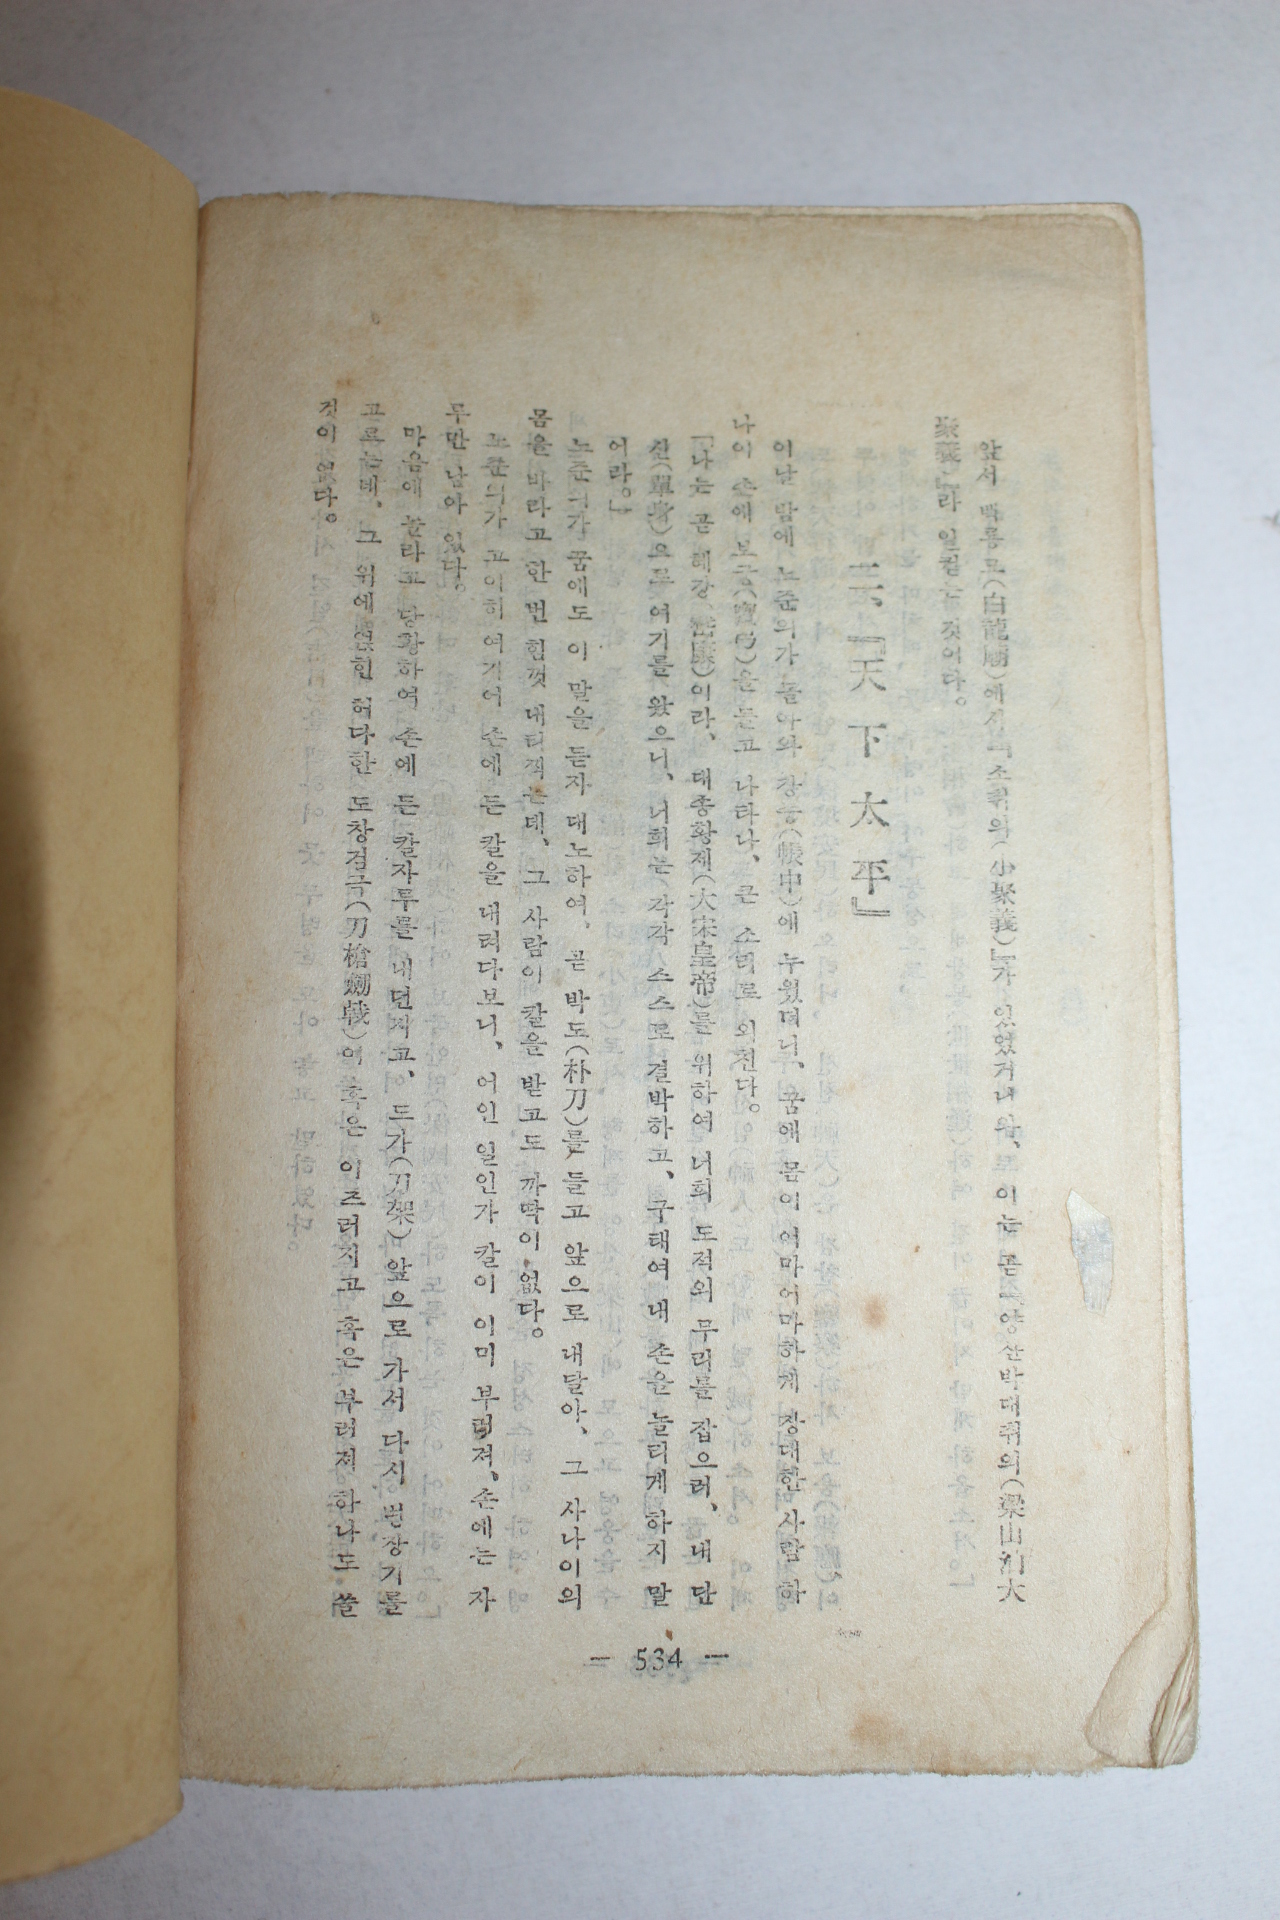 앞서 백룡묘(白龍廟)에서 『소취의(小聚義)』가 있었거니와, 이는 곧 양산박대취의(梁山泊大
聚義)』라 일컫는 것이다.
三、『天下太平』
이날 밤에 노준의가 돌아와 장중(帳中)에 누웠더니, 꿈에 몸이 어마어마하게 장대한 사람 하
나이 손에 보궁(寶弓)을 들고 나타나, 큰 소리로 외친다.
「나는 곧 혜강(嵆康)이라, 대송황제(大宋皇帝)를 위하여 너희 도적의 무리를 잡으러, 내 단
신(單身)으로 여기를 왔으니, 너희는 각각 스스로 결박하고, 구태여 내 손을 놀리게 하지 말
어라。」
노준의가 꿈에도 이 말을 듣자 대노하여, 곧 박도(朴刀)를 들고 앞으로 내달아, 그 사나이의
몸을 바라고 한 번 힘껏 내리찍는데, 그 사람이 칼을 받고도 까딱이 없다。
노준의가 고이히 여기어 손에 든 칼을 내려다보니, 어인 일인가 칼이 이미 부러져, 손에는 자
루만 남아 있다。
마음에 놀라고 당황하여 손에 든 칼자루를 내던지고, 도가(刀架) 앞으로 가서 다시 병장기를
고르는데, 그 위에 얹힌 허다한 도창검극(刀槍劒戟)이 혹은 이즈러지고 혹은 부러져 하나도 쓸
것이 없다。
— 534 —